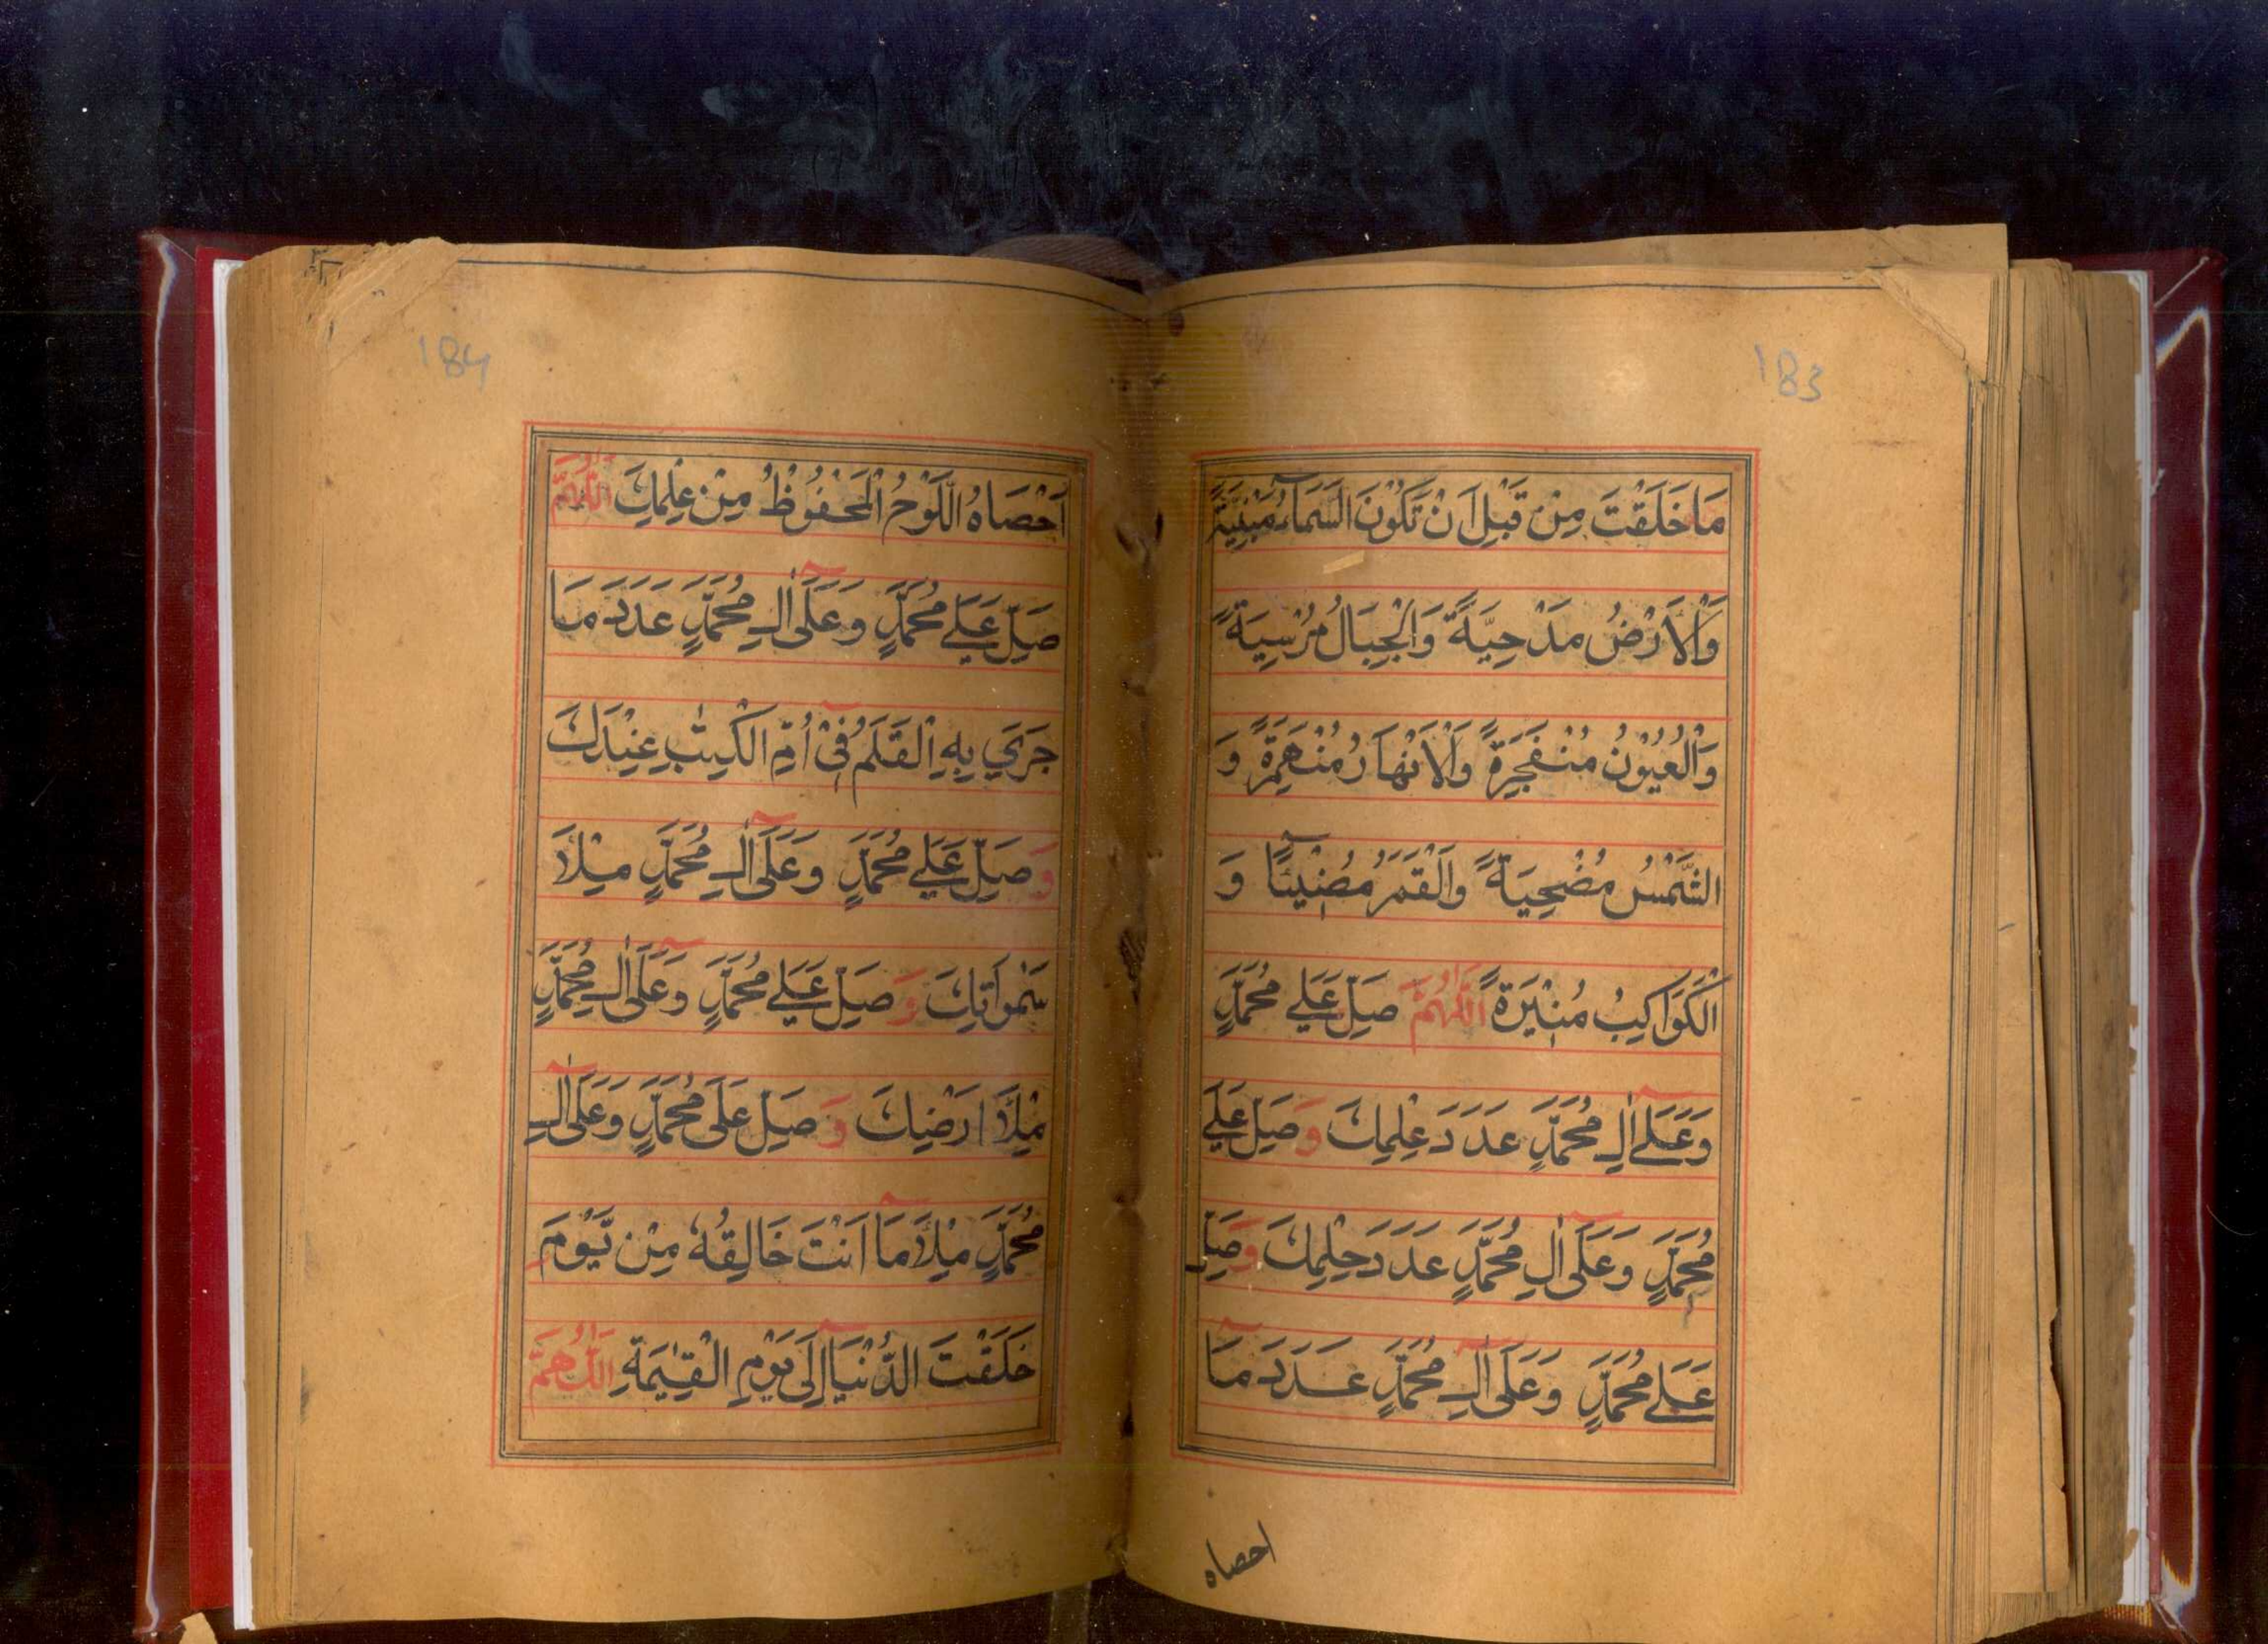 183
مَا خَلَقْتَ مِنْ قَبْلِ اَنْ تَكُوْنَ السَّمَآءُ مَبْنِيَّةً
وَالْاَرْضُ مَدْحِيَّةً وَالْجِبَالُ مُرْسِيَةً
وَالْعُيُوْنُ مُنْفَجِرَةً وَالْاَنْهَارُ مُنْهَمِرَةً وَ
الشَّمْسُ مُضْحِيَةً وَالْقَمَرُ مُضِيْئًا وَ
الْكَوَاكِبُ مُنِيْرَةً اَللّٰهُمَّ صَلِّ عَلٰي مُحَمَّدٍ
وَعَلٰٓي اٰلِ مُحَمَّدٍ عَدَدَ عِلْمِكَ وَصَلِّ عَلٰي
مُحَمَّدٍ وَعَلٰٓى اٰلِ مُحَمَّدٍ عَدَدَ حِلْمِكَ وَصَلِّ
عَلٰي مُحَمَّدٍ وَعَلٰٓى اٰلِ مُحَمَّدٍ عَدَدَ مَآ
احصاه
184
اَحْصَاهُ اللَّوْحُ الْمَحْفُوْظُ مِنْ عِلْمِكَ اَللّٰهُمَّ
صَلِّ عَلٰي مُحَمَّدٍ وَعَلٰٓى اٰلِ مُحَمَّدٍ عَدَدَ مَا
جَرٰي بِهِ الْقَلَمُ فِيْٓ اُمِّ الْكِتٰبِ عِنْدَكَ
وَصَلِّ عَلٰي مُحَمَّدٍ وَعَلٰٓى اٰلِ مُحَمَّدٍ مِلْأَ
سَمٰوَاتِكَ وَصَلِّ عَلٰي مُحَمَّدٍ وَعَلٰٓى اٰلِ مُحَمَّدٍ
مِلْأَ اَرْضِكَ وَصَلِّ عَلٰى مُحَمَّدٍ وَعَلٰٓى اٰلِ
مُحَمَّدٍ مِلْأَ مَآ اَنْتَ خَالِقُهٗ مِنْ يَّوْمَ
خَلَقْتَ الدُّنْيَآ اِلٰى يَوْمِ الْقِيٰمَةِ اَللّٰهُمَّ